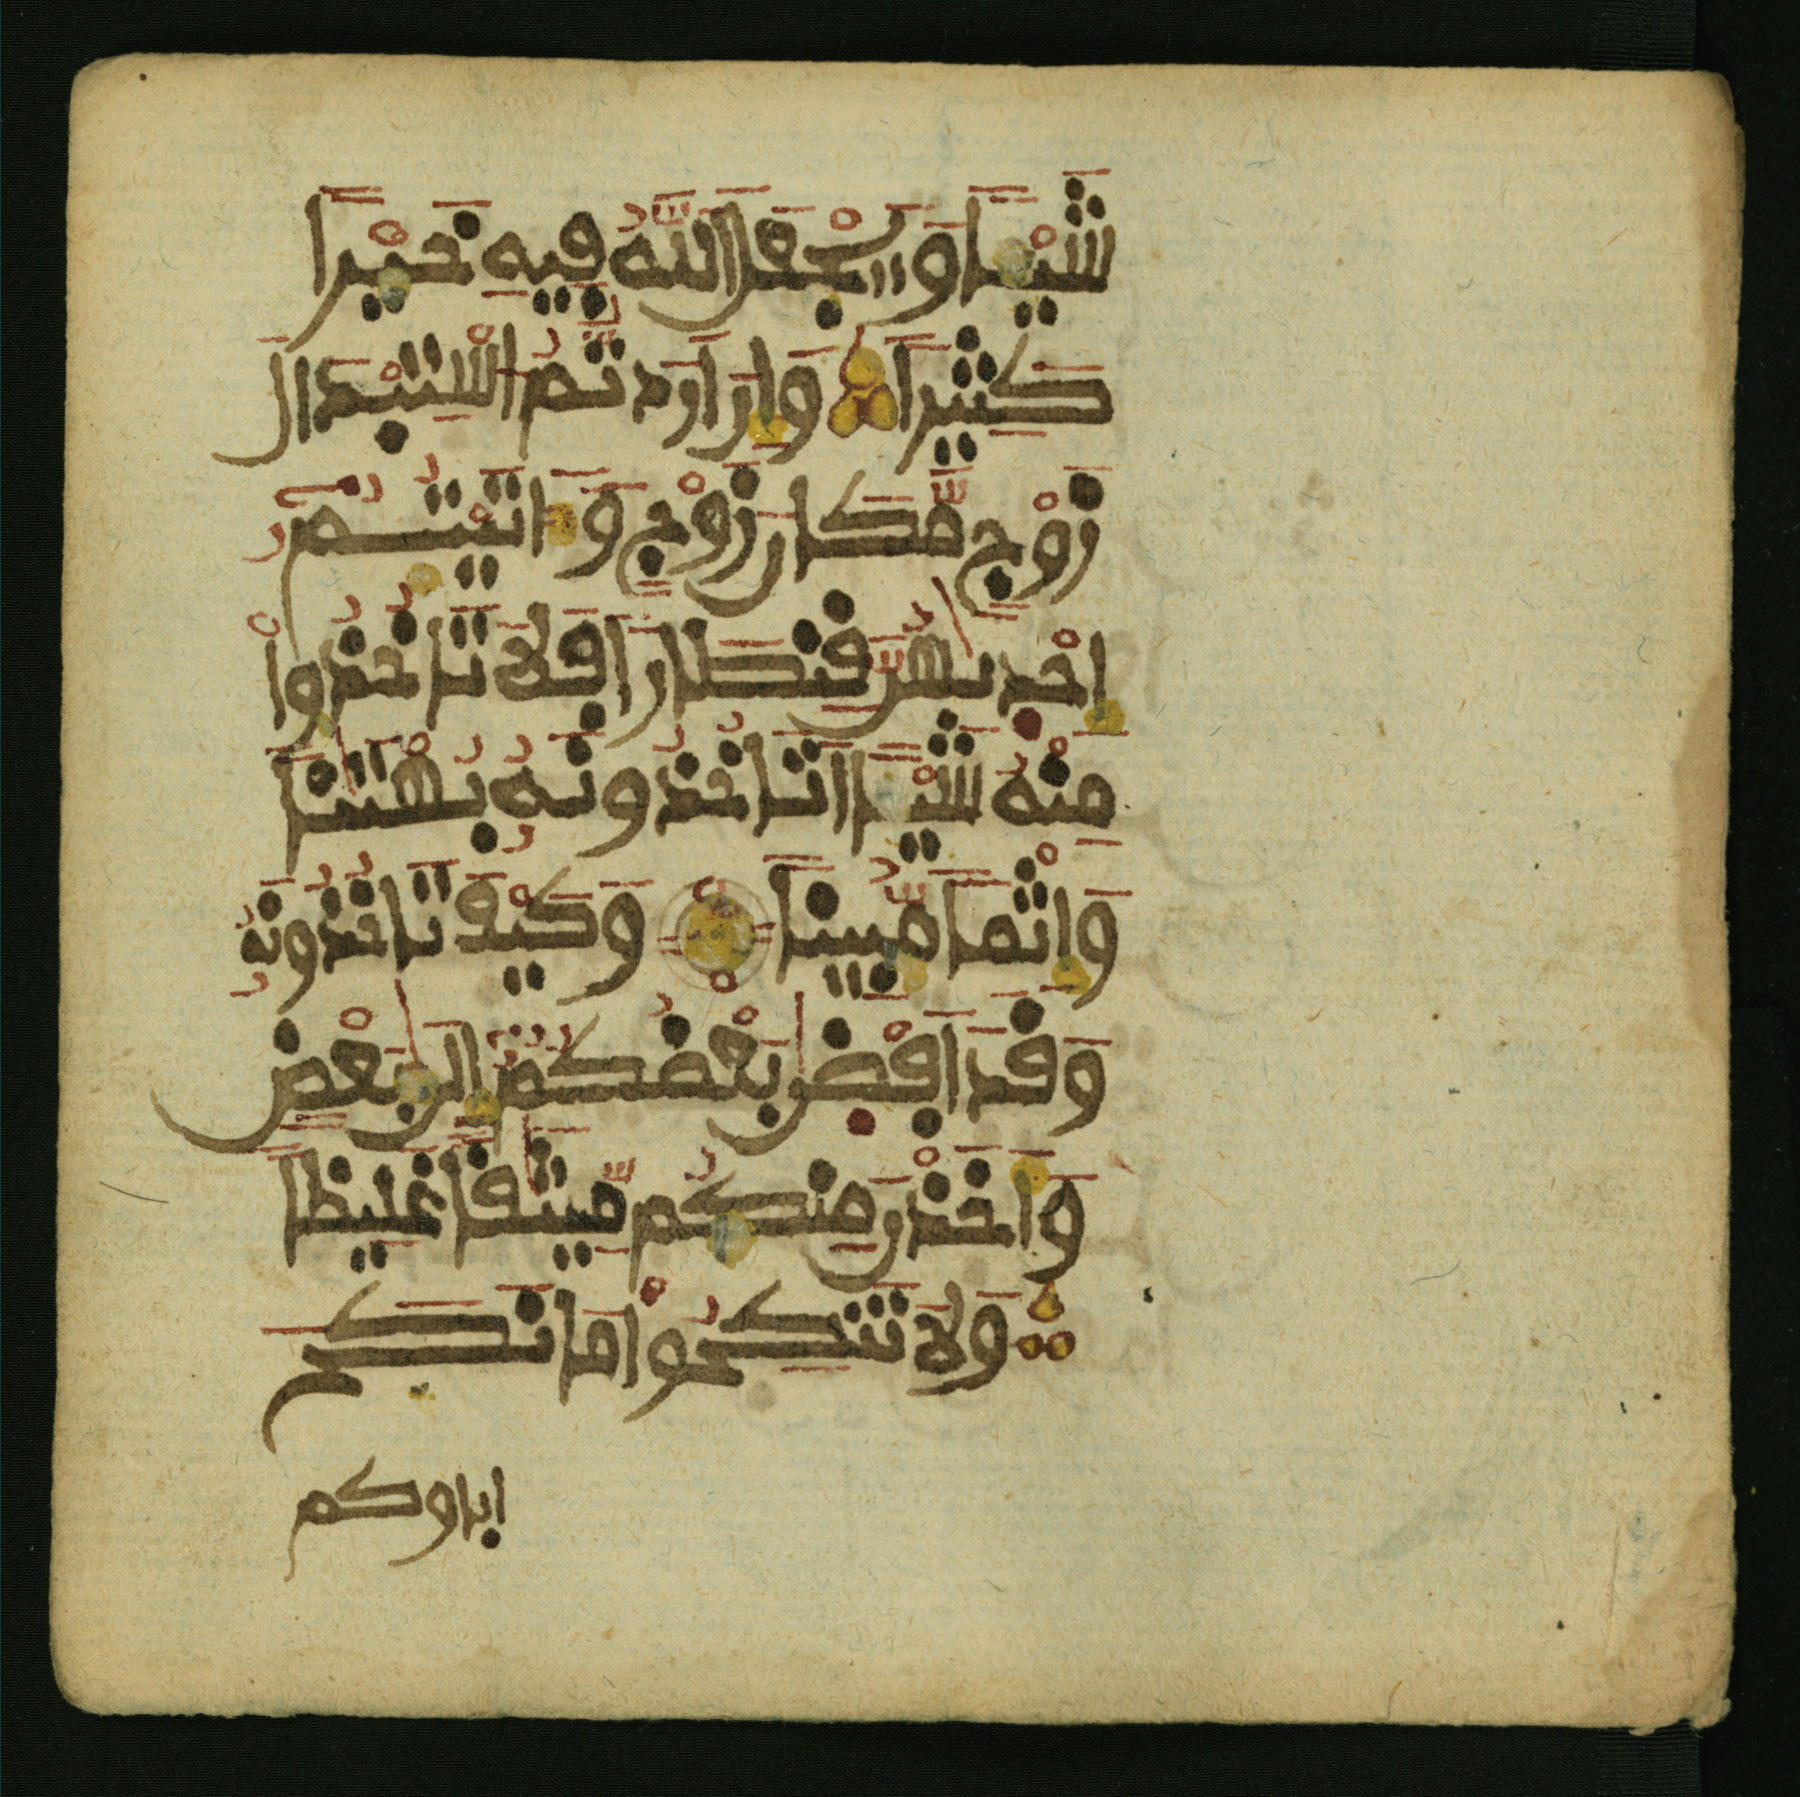 شَيْـًٔا وَيَجْعَلَ اَللَّهُ فِيهِ خَيْرًا
كَثِيرًا وَإِنَ اَرَدتُّمُ اُسْتِبْدَالَ
زَوْجٍ مَّكَانَ زَوْجٍ وَءَاتَيْتُمُۥٓ
إِحْدٜىٰهُنَّ قِنطَارًا فَلَا تَاخُذُواْ
مِنْهُ شَيْـًٔا اَتَاخُذُونَهُۥ بُهْتَٰنًا
وَإِثْمًا مُّبِينًا وَكَيْفَ تَاخُذُونَهُۥ
وَقَدَ اَفْضٜىٰ بَعْضُكُمُۥٓ إِلَىٰ بَعْضٍ
وَأَخَذْنَ مِنكُم مِّيثَٰقًا غَلِيظًا
وَلَا تَنكِحُواْ مَا نَكَحَ
اباوكم